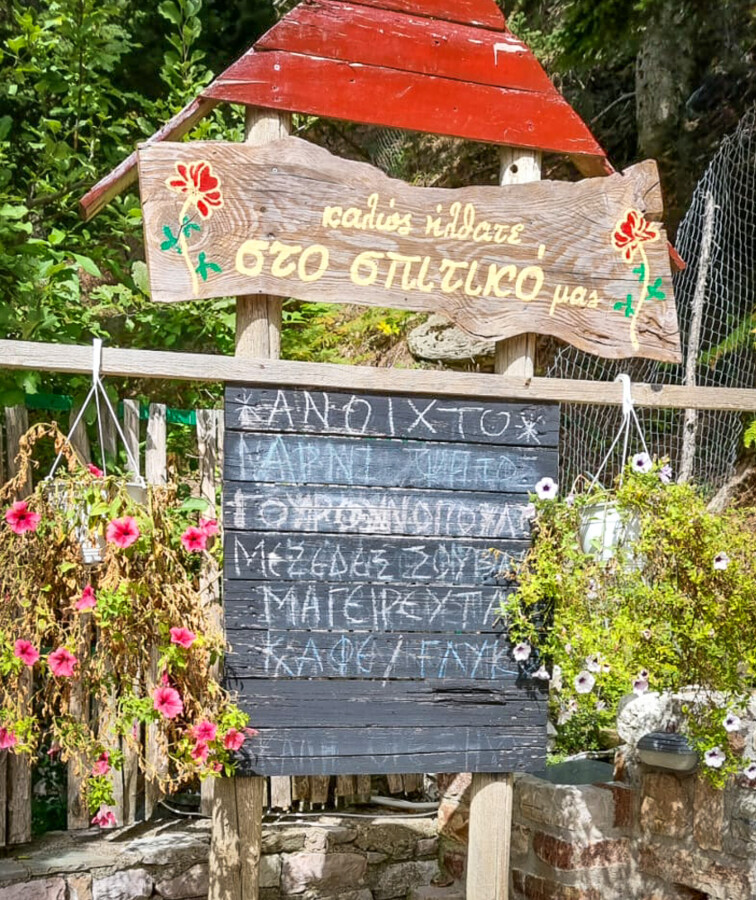 καλώς ήλθατε
στο σπιτικό μας
*ΑΝΟΙΧΤΟ*
ΑΡΝΙ ΨΗΤΟ
ΓΟΥΡΟΥΝΟΠΟΥΛ
ΜεΖΕΔΕΣ ΣΟΥΒΛ
ΜΑΓΕΙΡΕΥΤΑ
ΚΑΦΕ/ΓΛΥΚ